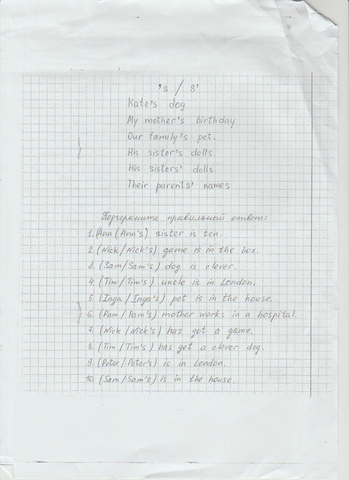 's / s'
Kate's dog
My mother's birthday
Our family's pet.
His sister's dolls.
His sisters' dolls
Their parents' names
Подчеркните правильный ответ:
1. (Ann (Ann's) sister is ten.
2. (Nick/Nick's) game is in the box.
3. (Sam/Sam's) dog is clever.
4. (Tim/Tim's) uncle is in London.
5. (Inga/Inga's) pet is in the house.
6. (Pam/Pam's) mother works in a hospital.
7. (Nick/Nick's) has got a game.
8. (Tim/Tim's) has got a clever dog.
9. (Peter/Peter's) is in London.
10. (Sam/Sam's) is in the house.